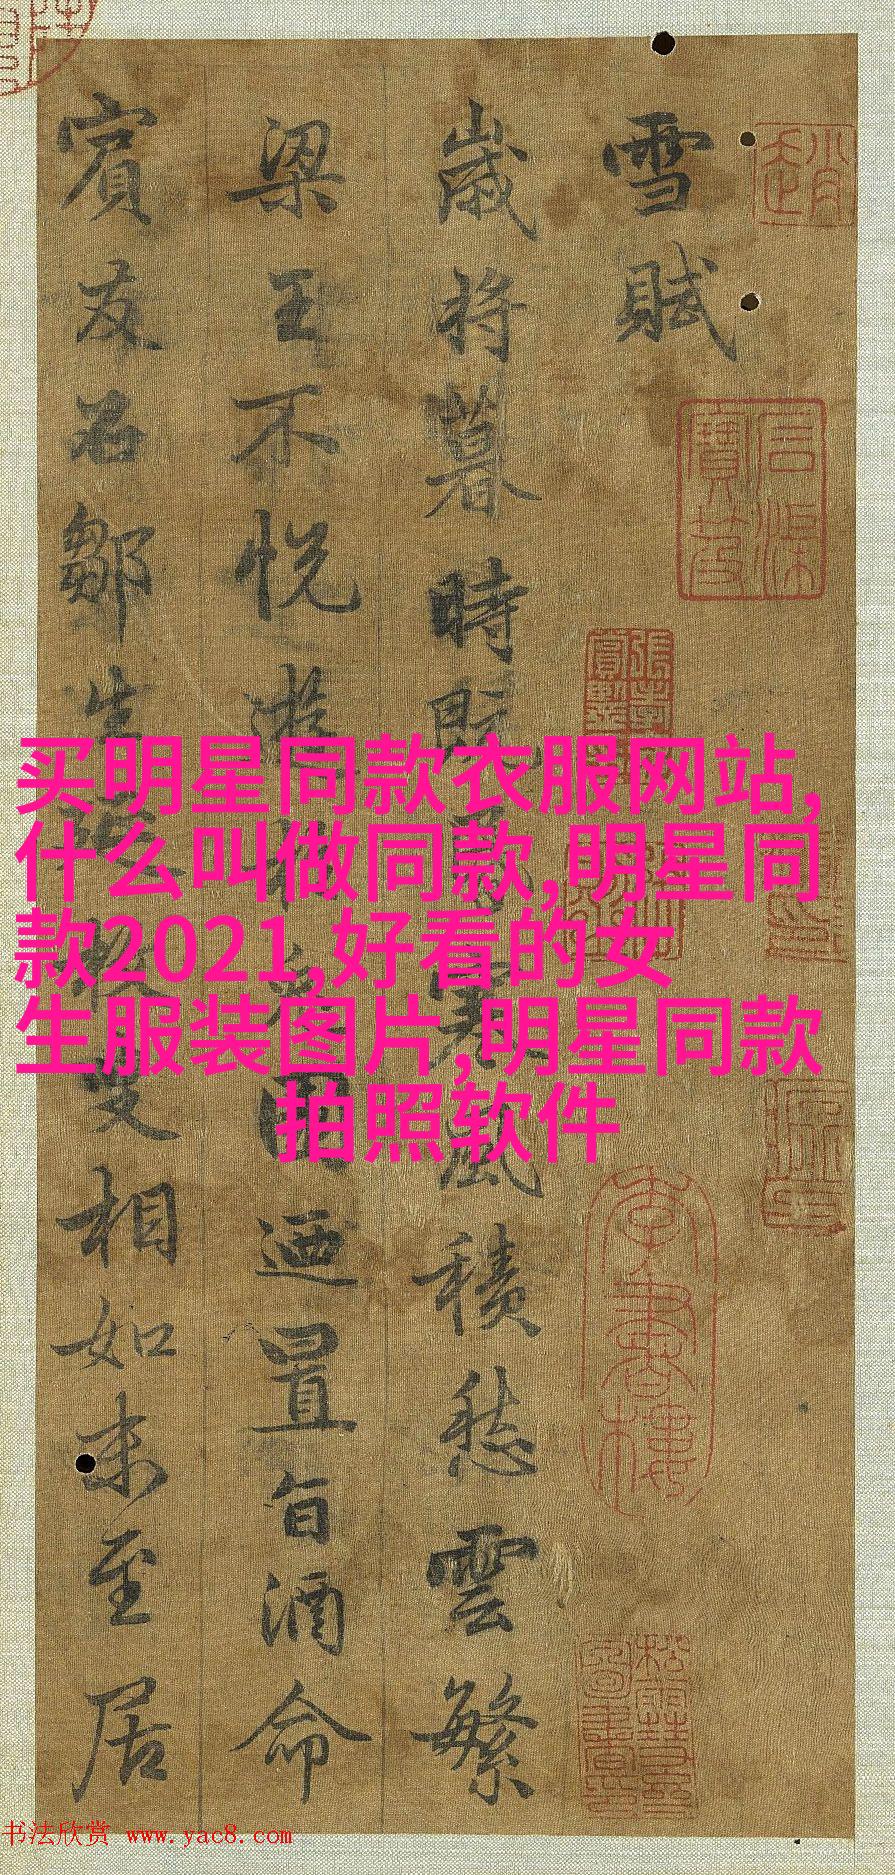 雪賦
歲將暮時既昏寒風積愁雲繁
梁王不悅游於兔園迺置旨酒命
賓友召鄒生延枚叟相如末至居
买明星同款衣服网站,
什么叫做同款,明星同
款2021,好看的女
生服装图片,明星同款
拍照软件
书法欣赏 www.yac8.com